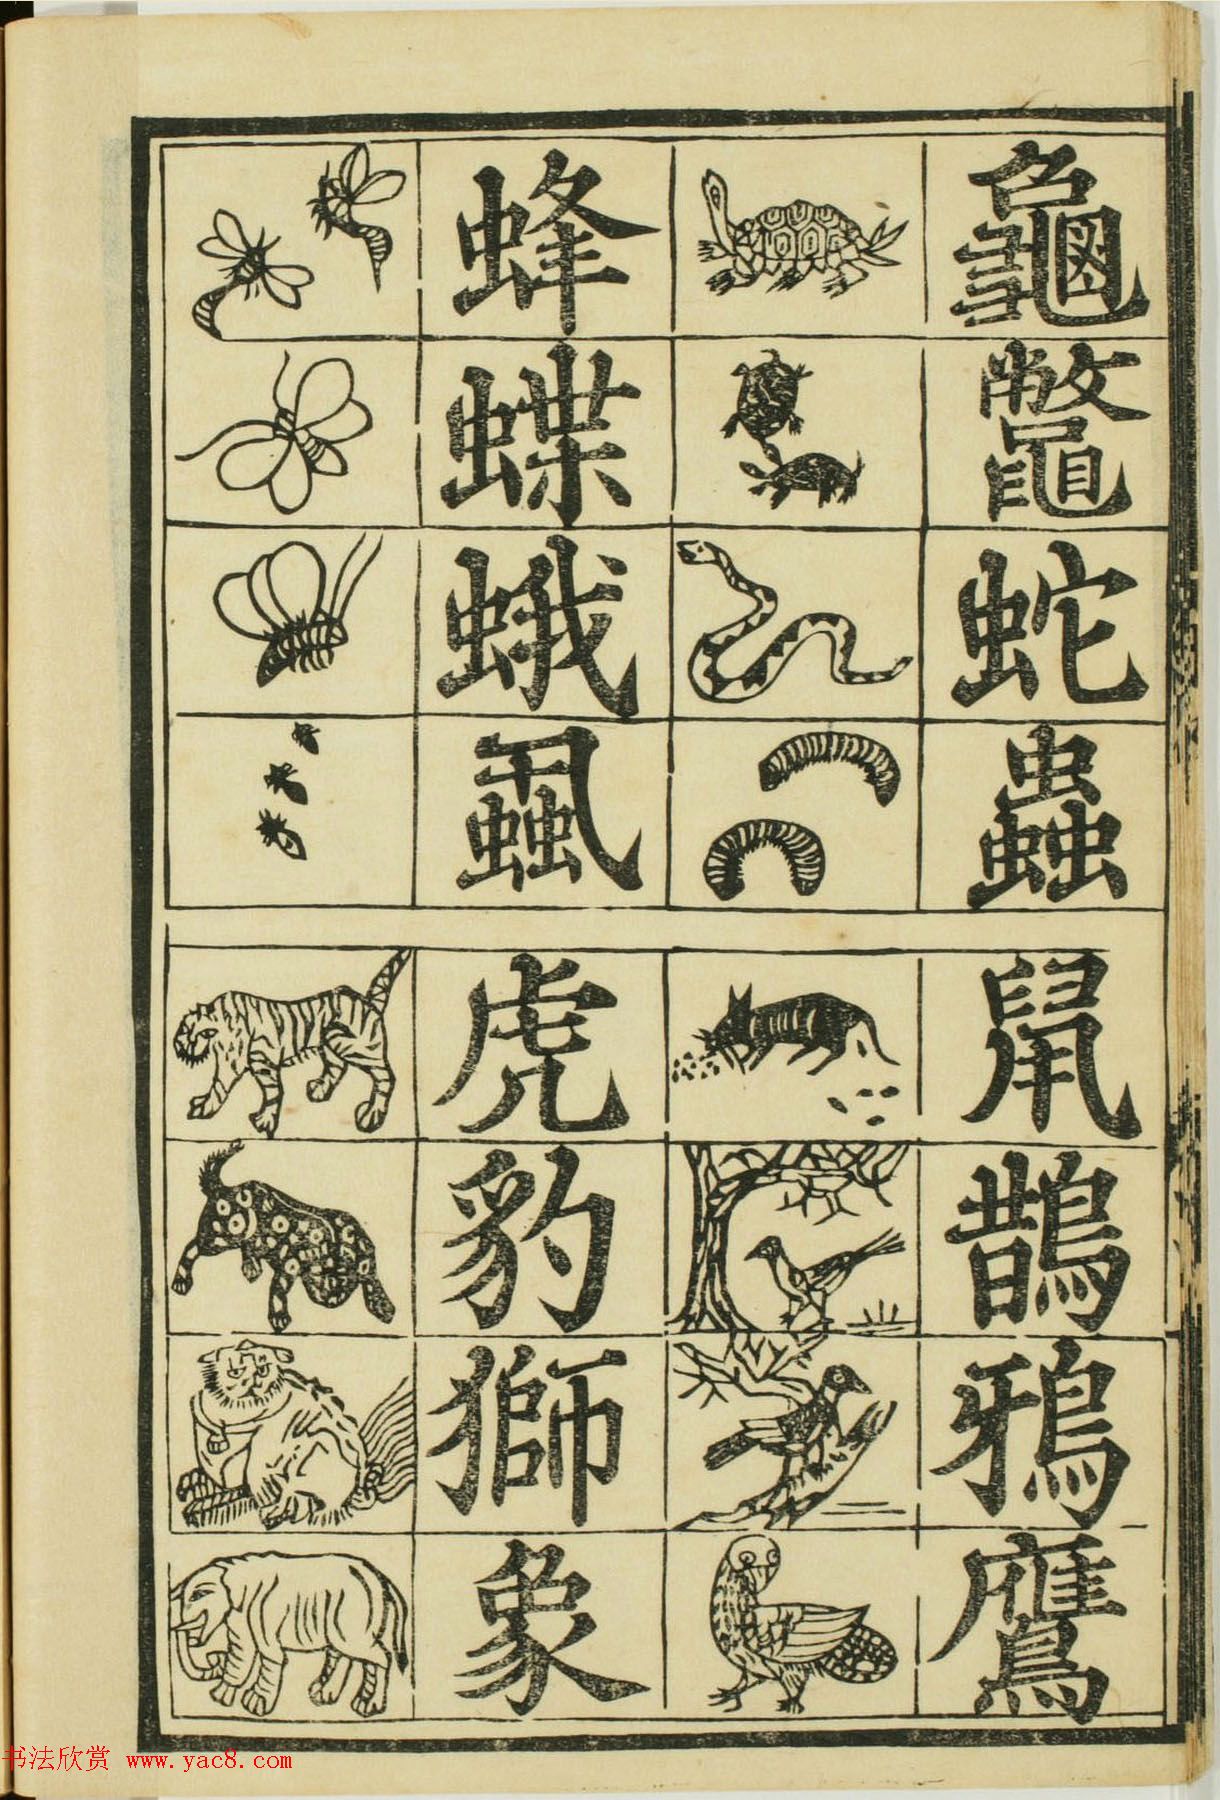 龜
鼈
蛇
蟲
蜂
蝶
蛾
蝨
鼠
鵲
鴉
鷹
虎
豹
獅
象
书法欣赏 www.yac8.com